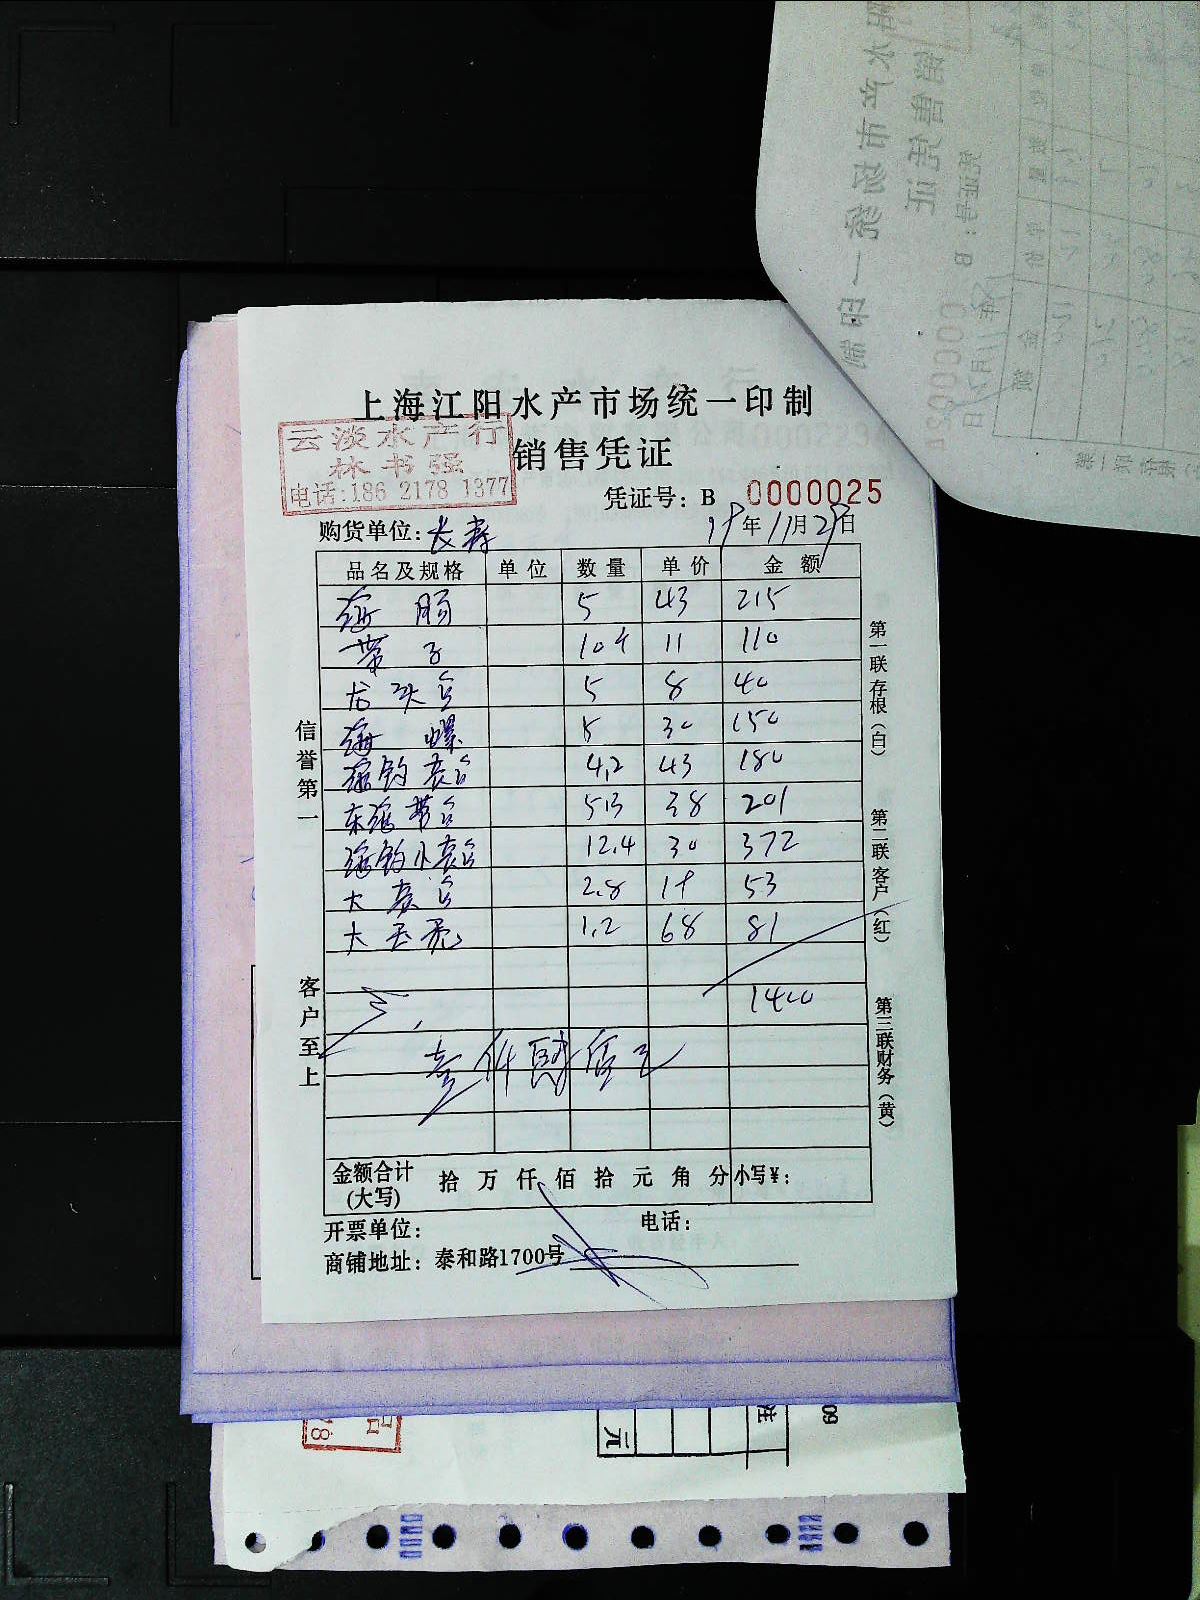 上海江阳水产市场统一印制
云淡水产行
林书强
电话:186 2178 1377
销售凭证
凭证号: B 0000025
购货单位: 长寿
19年11月29日
品名及规格 单位 数量 单价 金额
海肠 5 43 215
带子 10个 11 110
龙头鱼 5 8 40
海螺 5 30 150
海钓 4.2 43 180
东海带鱼 5.3 38 201
海钓小黄鱼 12.4 30 372
大黄鱼 2.8 19 53
大 1.2 68 81
1400
壹仟肆佰元
信誉第一
客户至上
第一联 存根(白)
第二联 客户(红)
第三联 财务(黄)
金额合计(大写) 拾 万 仟 佰 拾 元 角 分 小写¥:
开票单位: 电话:
商铺地址: 泰和路1700号